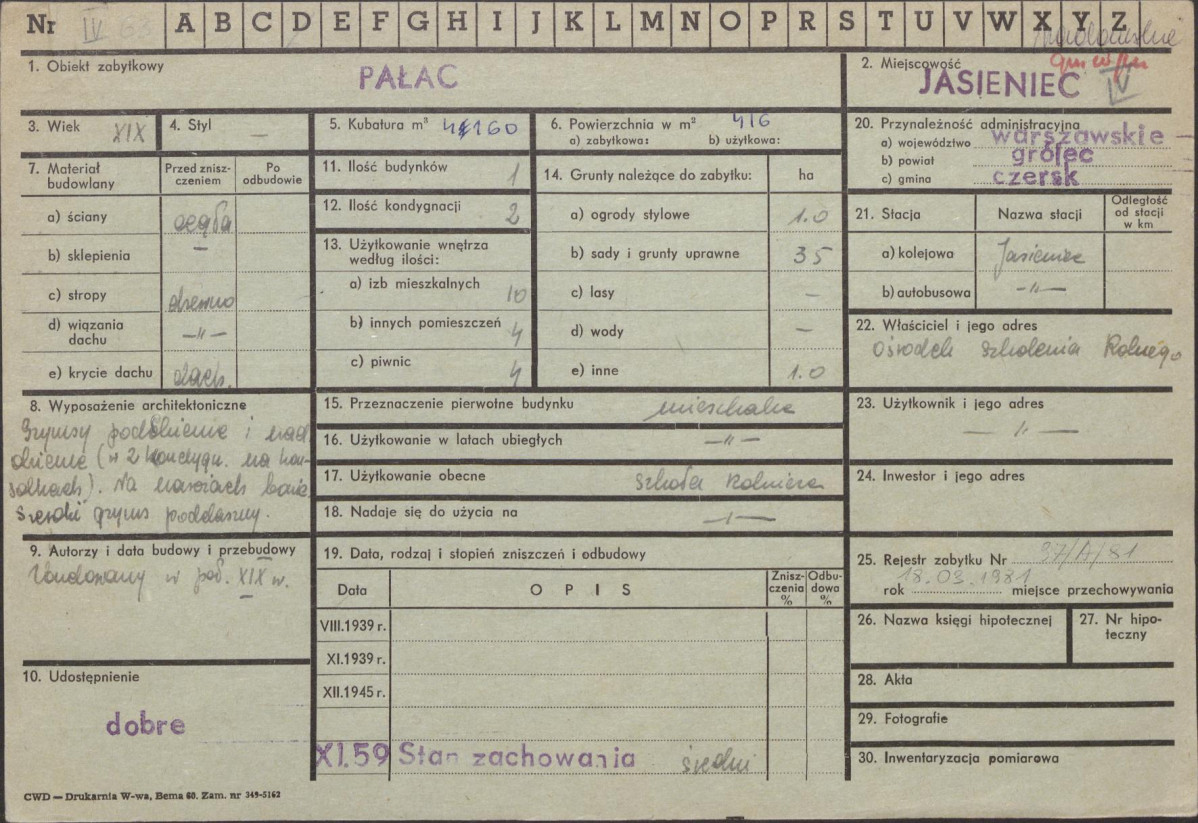 Nr IV 63 A B C D E F G H I J K L M N O P R S T U V W X Y Z
1. Obiekt zabytkowy PAŁAC
2. Miejscowość JASIENIEC IV
3. Wiek XIX
4. Styl —
5. Kubatura m³ 4160
6. Powierzchnia w m² 416
a) zabytkowa: b) użytkowa:
20. Przynależność administracyjna
a) województwo warszawskie
b) powiat grójec
c) gmina czersk
7. Materiał budowlany
Przed znisz-
czeniem
Po
odbudowie
a) ściany cegła
b) sklepienia —
c) stropy drewno
d) wiązania
dachu —"—
e) krycie dachu dach.
11. Ilość budynków 1
12. Ilość kondygnacji 2
13. Użytkowanie wnętrza
według ilości:
a) izb mieszkalnych 10
b) innych pomieszczeń 4
c) piwnic 4
14. Grunty należące do zabytku: ha
a) ogrody stylowe 1.0
b) sady i grunty uprawne 35
c) lasy —
d) wody —
e) inne 1.0
21. Stacja Nazwa stacji
Odległość
od stacji
w km
a) kolejowa Jasieniec
b) autobusowa —"—
22. Właściciel i jego adres
Ośrodek Szkolenia Rolnego
8. Wyposażenie architektoniczne
Gzymsy podokienne i nad
okienne (w 2 kondygn. na kon-
solkach). Na narożach bonie
Szeroki gzyms poddaszny.
15. Przeznaczenie pierwotne budynku mieszkalne
16. Użytkowanie w latach ubiegłych —"—
17. Użytkowanie obecne szkoła rolnicza
18. Nadaje się do użycia na —"—
23. Użytkownik i jego adres
—"—
24. Inwestor i jego adres
9. Autorzy i data budowy i przebudowy
Zbudowany w poł. XIX w.
19. Data, rodzaj i stopień zniszczeń i odbudowy
Data OPIS
Znisz-
czenia
%
Odbu-
dowa
%
VIII.1939 r.
XI.1939 r.
XII.1945 r.
XI.59 Stan zachowania średni
25. Rejestr zabytku Nr 37/A/81
rok 18.03.1981 miejsce przechowywania
26. Nazwa księgi hipotecznej
27. Nr hipo-
teczny
10. Udostępnienie
dobre
28. Akta
29. Fotografie
30. Inwentaryzacja pomiarowa
CWD — Drukarnia W-wa, Bema 60. Zam. nr 349-5162